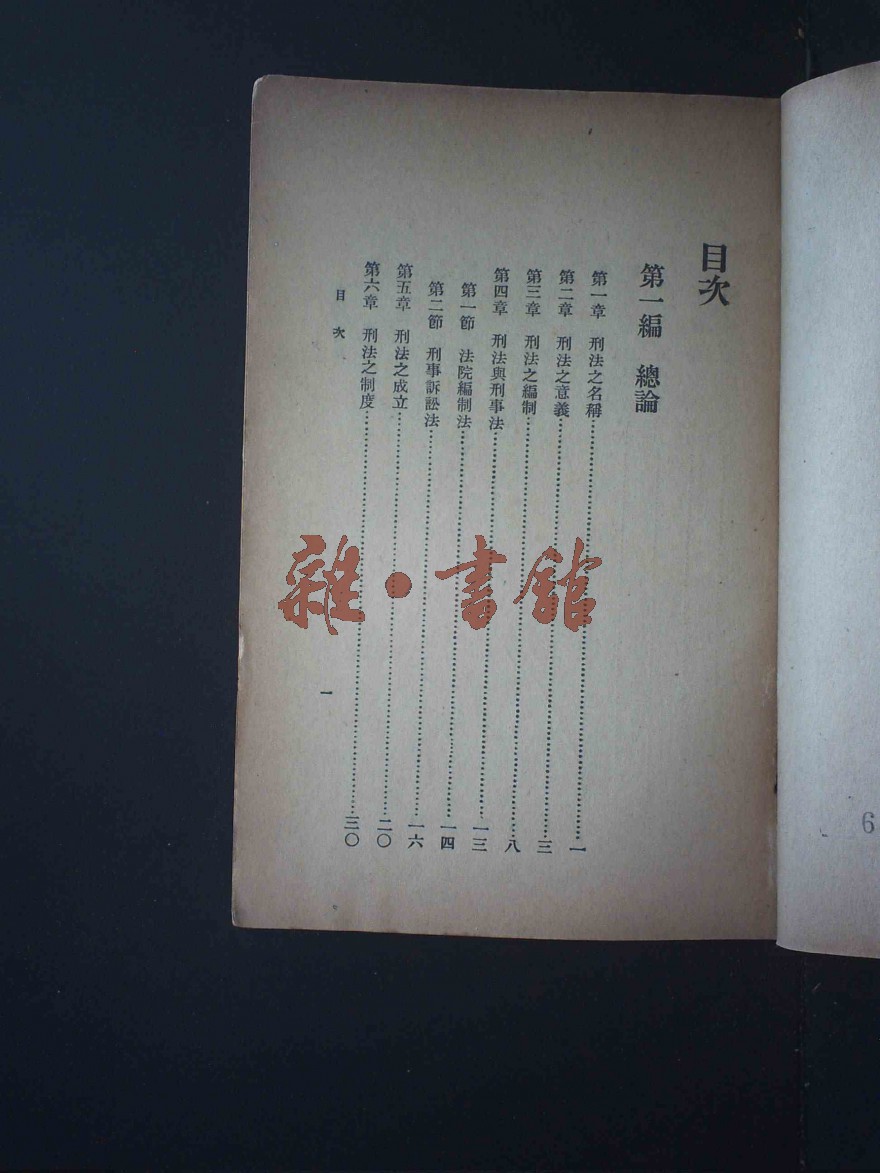 目次
第一編　總論
第一章　刑法之名稱……一
第二章　刑法之意義……三
第三章　刑法之編制……八
第四章　刑法與刑事法……一三
第一節　法院編制法……一四
第二節　刑事訴訟法……一六
第五章　刑法之成立……二〇
第六章　刑法之制度……三〇
目次　一
雜·書館
6